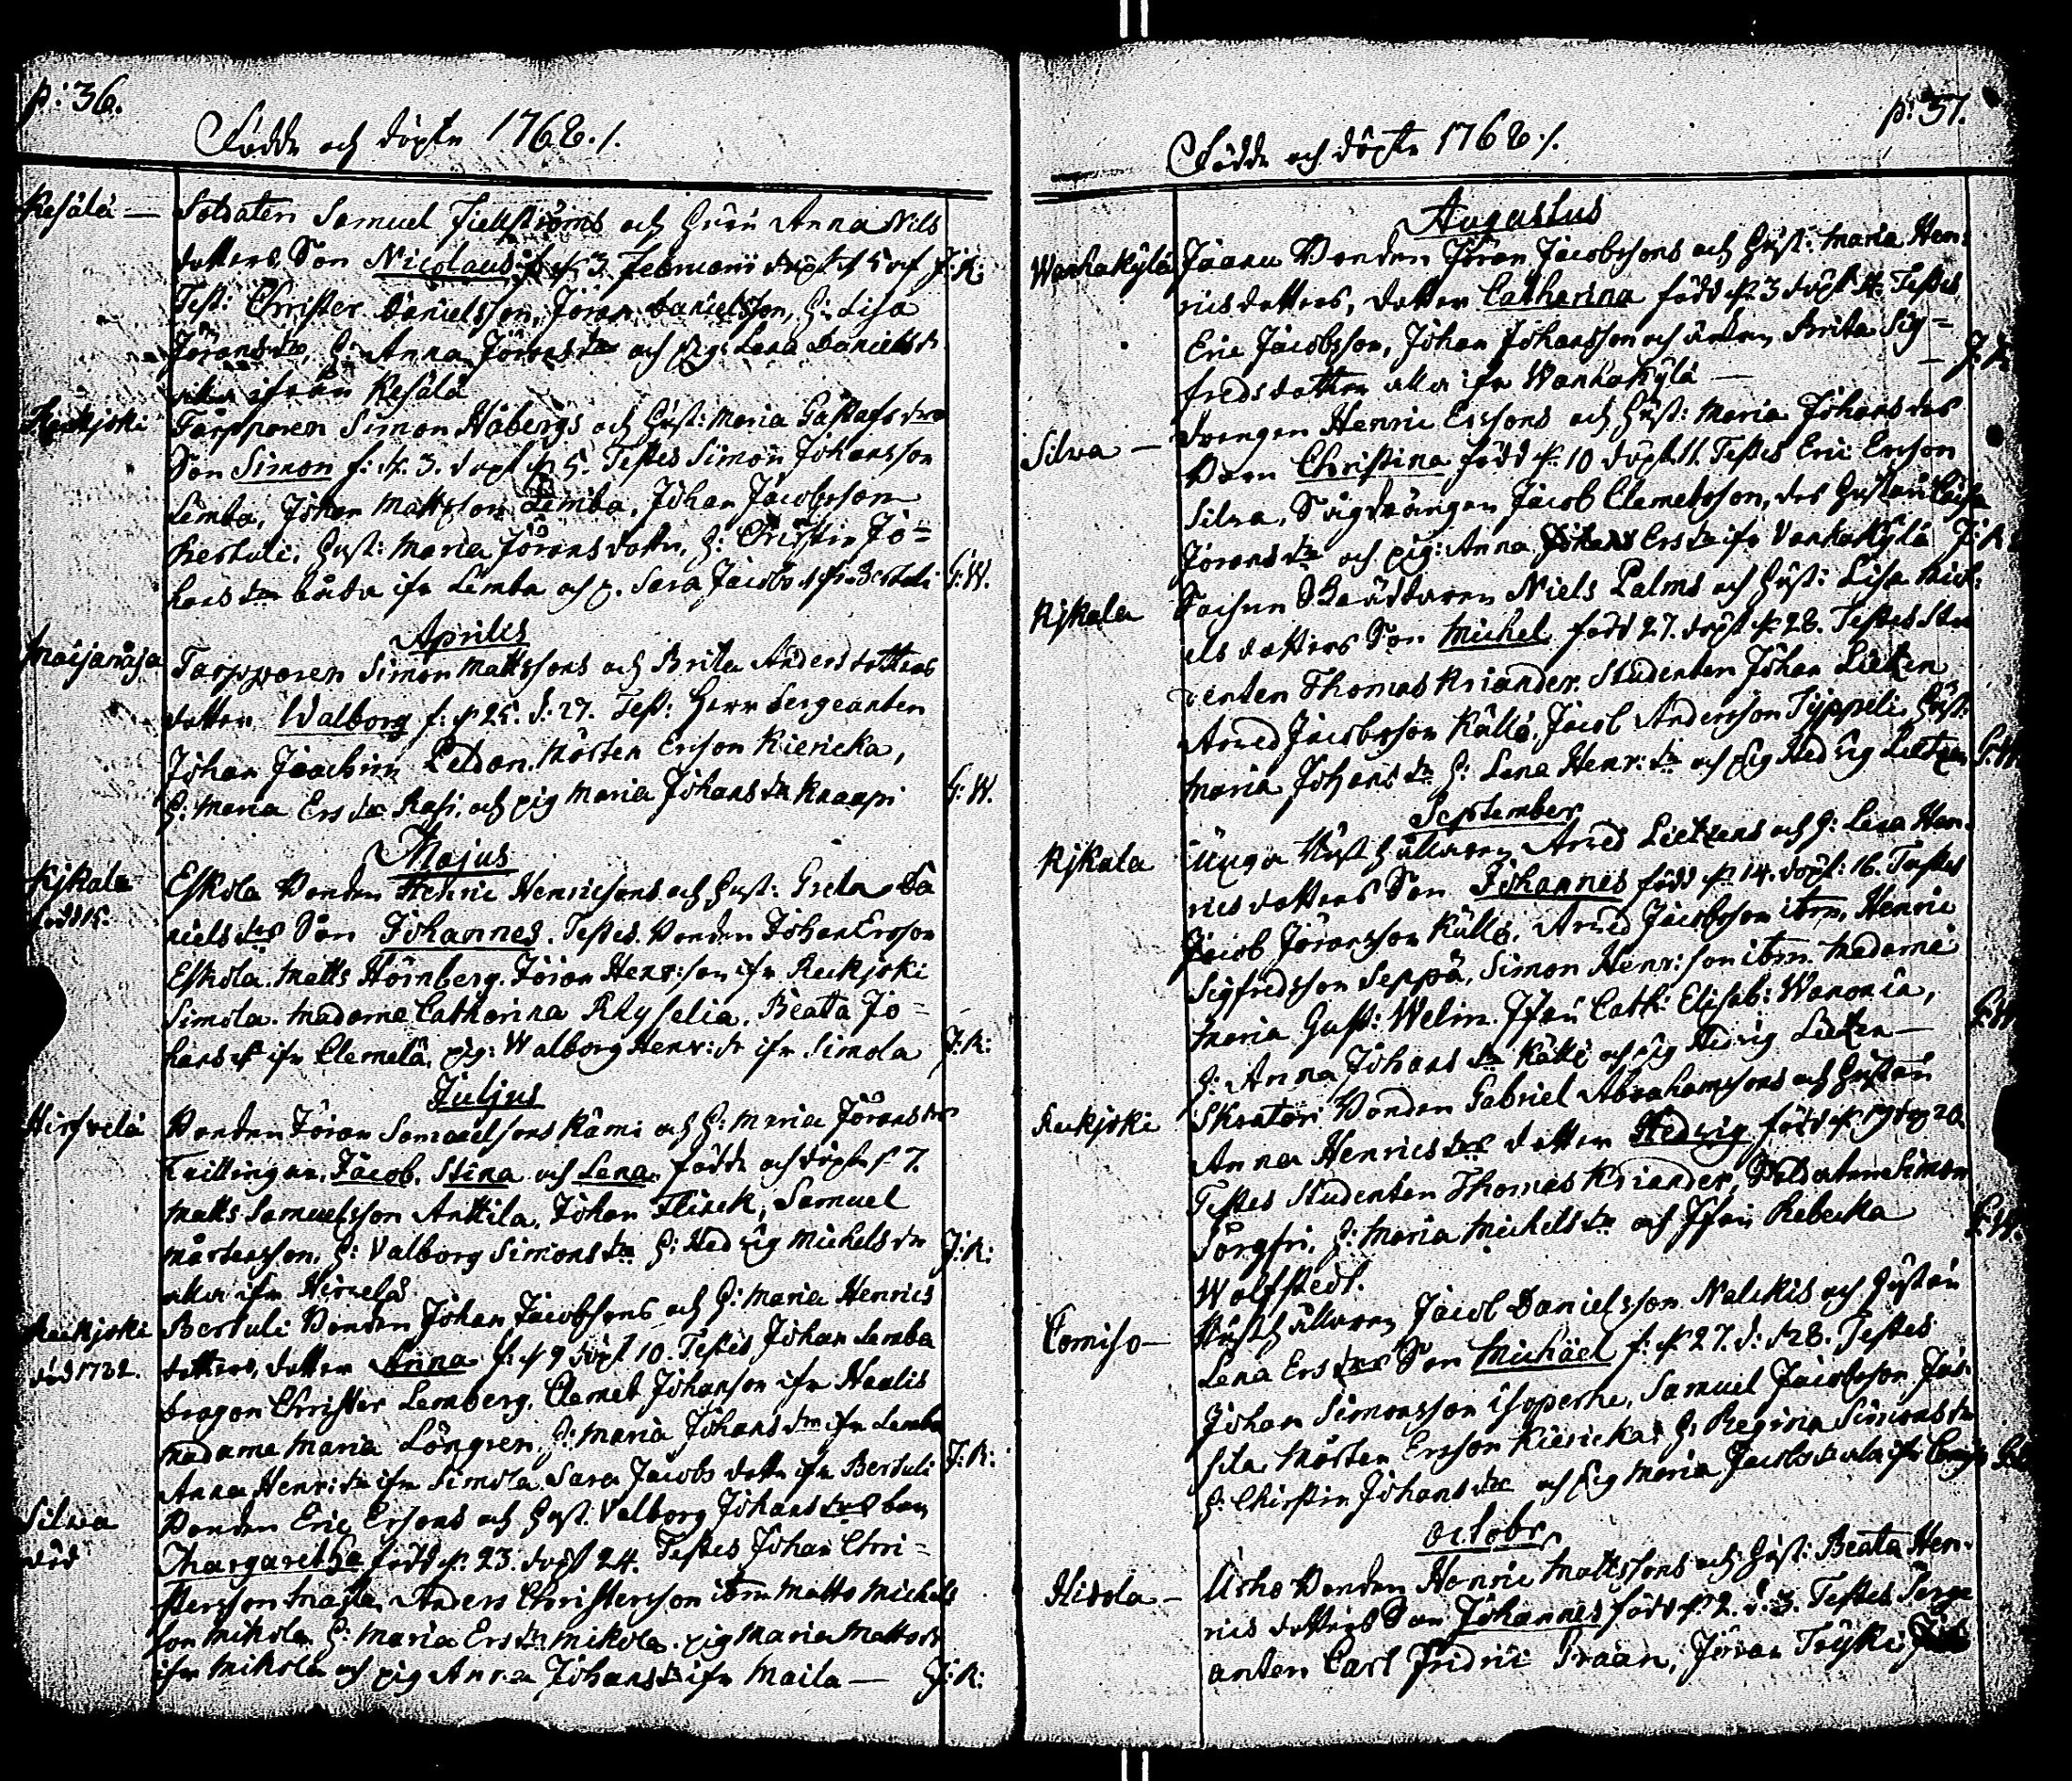 p: 36.
Födde och döpte 1768./.
Resälä — Soldaten Samuel Fiellströms och Hustru Anna Nils
dotters Son Nicolaus f. d. 3. Februarii döpt d. 5 J: K:
Test: Christer Danielsson, Jöran Danielsson, H: Lisa
Jörans dr, H: Anna Jörans dr och pig: Lena Daniels dr
alla ifrån Resälä
Reekjoki Torpparen Simon Håbergs och Hust: Maria Gustafs dr
Son Simon f: d. 3. döpt d. 5. Testes Simon Johansson
Lemba, Johan Mattsson Lemba, Johan Jacobsson
Bertuli, Hust: Maria Jörans dotter, H: Christin Jo=
hans dr båda ifr Lemba och p. Sara Jacobs d ifr Bertuli G: W.
Aprilis
Torpparen Simon Mattssons och Brita Anders dotters
dotter Walborg f: d. 25. d: 27. Test: Herr Sergeanten
Johan Joachim Peldan. Mårten Ersson Kiericka,
H: Maria Ers dr Rasi. och pig Maria Johans dr Knaapi G: W.
Majus
Kjkala Eskola Bonden Henric Henricsons och Hust: Greta Da
född 15. niels drs Son Johannes. Testes. Bonden Johan Ersson
Eskola. Matts Hörnberg. Jöran Henr: son ifr Reekjoki
Simola. Madame Catharina Rhyselia. Beata Jo=
hans dr ifr Clemelä, pig: Walborg Henr: dr ifr Simola J: K:
Juljus
Hirfvelä Bonden Jöran Samuelsons Kåmi och H: Maria Jörans drs
Trillingar. Jacob. Stina och Lena. födde och döpte d. 7.
Matts Samuelsson Anttila, Johan Flinck, Samuel
Mårtensson, H: Valborg Simons dr H: Hedvig Michels dr J: K:
alla ifr Hirvelä
Reekjoki Bertuli Bonden Johan Jacobssons och H: Maria Henrics
död 1732. dotters, dotter Anna f: d. 9 döpt 10. Testes Johan Lemba
Dragon Christer Lemberg, Clemet Johanson ifr Heelis
Madame Maria Löngren, H: Maria Johans dr ifr Lemba
Anna Henr: dr ifr Simola Sara Jacobs dotter ifr Bertuli J: K:
Silwa Bonden Eric Ersons och Hust. Valborg Johans drs barn
död Margaretha född d. 23. döpt 24. Testes Johan Chri=
stersson Anders Christersson ibm Matts Michels
son Mikola H: Maria Ers dr Mikola. pig Maria Matts dr
ifr Mikola och pig Anna Johans dr ifr Maila — J: K:
p: 37.
Födde och döpte 1768./.
Augustus
Wanhakylä Jaanu Bonden Jöran Jacobssons och Hust: Maria Hen:
rics dotters, dotter Catharina född d. 3 döpt 4. Testes
Eric Jacobsson, Johan Johansson och Brita Sig=
freds dotter alla ifr Wanhakylä — J: K
Silva — Drengen Henric Erssons och Hust: Maria Johans drs
Barn Christina född d. 10 döpt 11. Testes Eric Ersson
Silva, Jacob Clemetsson, des Hustru Caisa
Jörans dr och pig: Anna Ers dr ifr Vanhakylä J: K
Kjkala Niels Palms och Hust: Lisa Mich:
els dotters Son Michel född 27. döpt d. 28. Testes Stu
denten Thomas Kriander. Studenten Johan Lietzen
Arved Jacobsson Källä. Jacob Andersson Typpeli, Hust:
Maria Johans dr H: Lena Henr: dr och pig Hedvig Lietzen G: W.
September
Kjkala Unga Rusthållaren Arved Lietzens och H: Lena Hen
rics dotters Son Johannes född d. 14. döpt: 16. Testes
Jacob Jöransson Källä, Arved Jacobsson ibm, Henric
Sigfredsson Seppä, Simon Henr: son ibm. Madame
Maria Gust: Welin. Jfru Cath: Elisab: Wanonia,
H: Anna Johans dr Källe och pig Hedvig Lietzen — G: W.
Reekjoki Skratari Bonden Gabriel Abrahamssons och Hustru
Anna Henrics drs dotter Hedvig född d. 19 döp 20.
Testes Studenten Thomas Kriander, Soldaten Simon
Sorgfri, H: Maria Michels dr och Jfru Rebecka G: W.
Wolfstedt.
Comiso — Rusthållaren Jacob Danielsson Nalckis och Hustru
Lena Ers drs Son Michäel f. d. 27. d: d. 28. Testes
Johan Simonsson Isoperhe, Samuel Jacobsson Jus-
sila Mårten Ersson Kiericka, H: Regina Simons dr
H: Christin Johans dr och pig Maria Jacobs dr alla ifr Comiso
Octobr
Hevola — Urho Bonden Henric Mattssons och Hust: Beata Hen-
rics dotters Son Johannes född d. 2. d. 3. Testes Serge
anten Carl Fridric Praan, Jöran Tryski